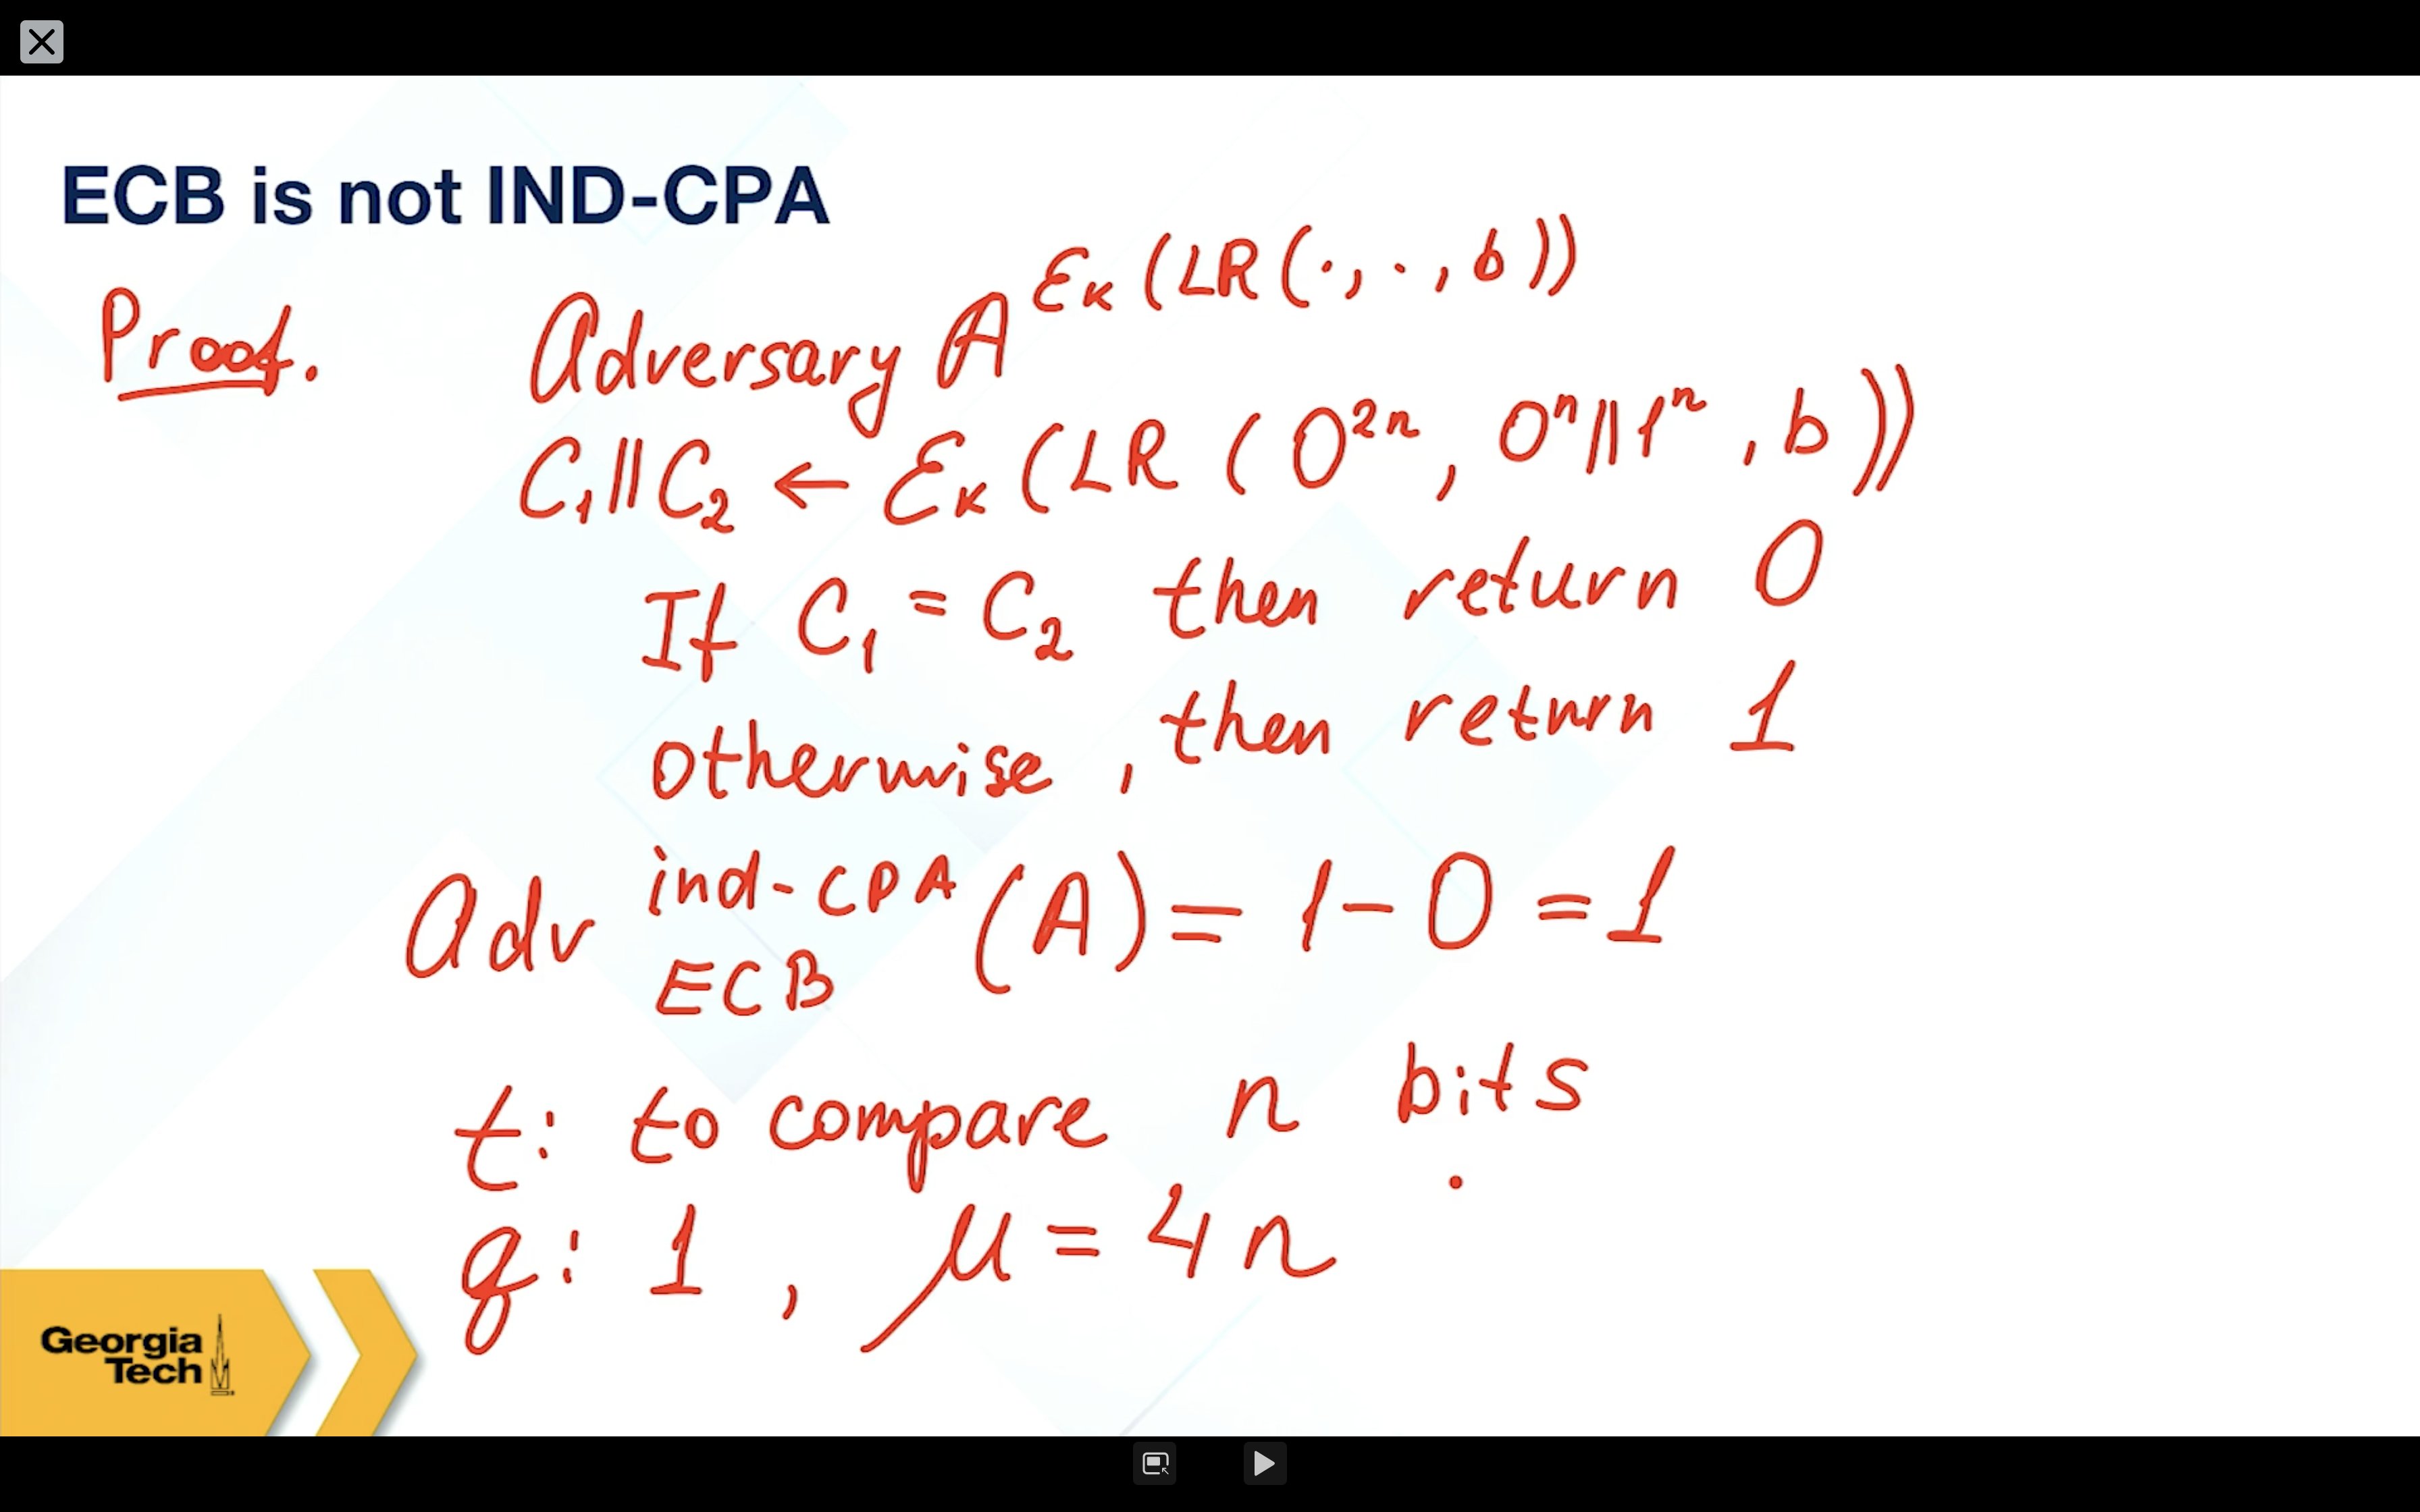 ECB is not IND-CPA
Proof. Adversary A^{Ɛ_K(LR(·,·,b))}
C₁||C₂ ← Ɛ_K(LR(0^{2n}, 0^n||1^n, b))
If C₁ = C₂ then return 0
otherwise, then return 1
Adv^{ind-CPA}_{ECB}(A) = 1 - 0 = 1
t: to compare n bits
q: 1, μ = 4n
Georgia
Tech